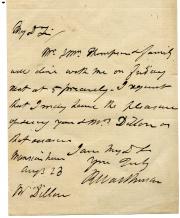 My D Sir
Mr & Mrs Thompson & family
will dine with me on Friday
next at 5 precisely. I request
that I may have the pleasure
of seeing you & Mrs Dillon on
that occasion
I am My D Sir
Yrs truly
Augt 23
Mr Dillon